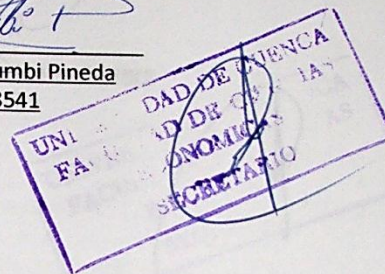 umbi Pineda
3541
UNI DAD DE CUENCA
FA D DE C IAS
ONOMICAS
SECRETARIO